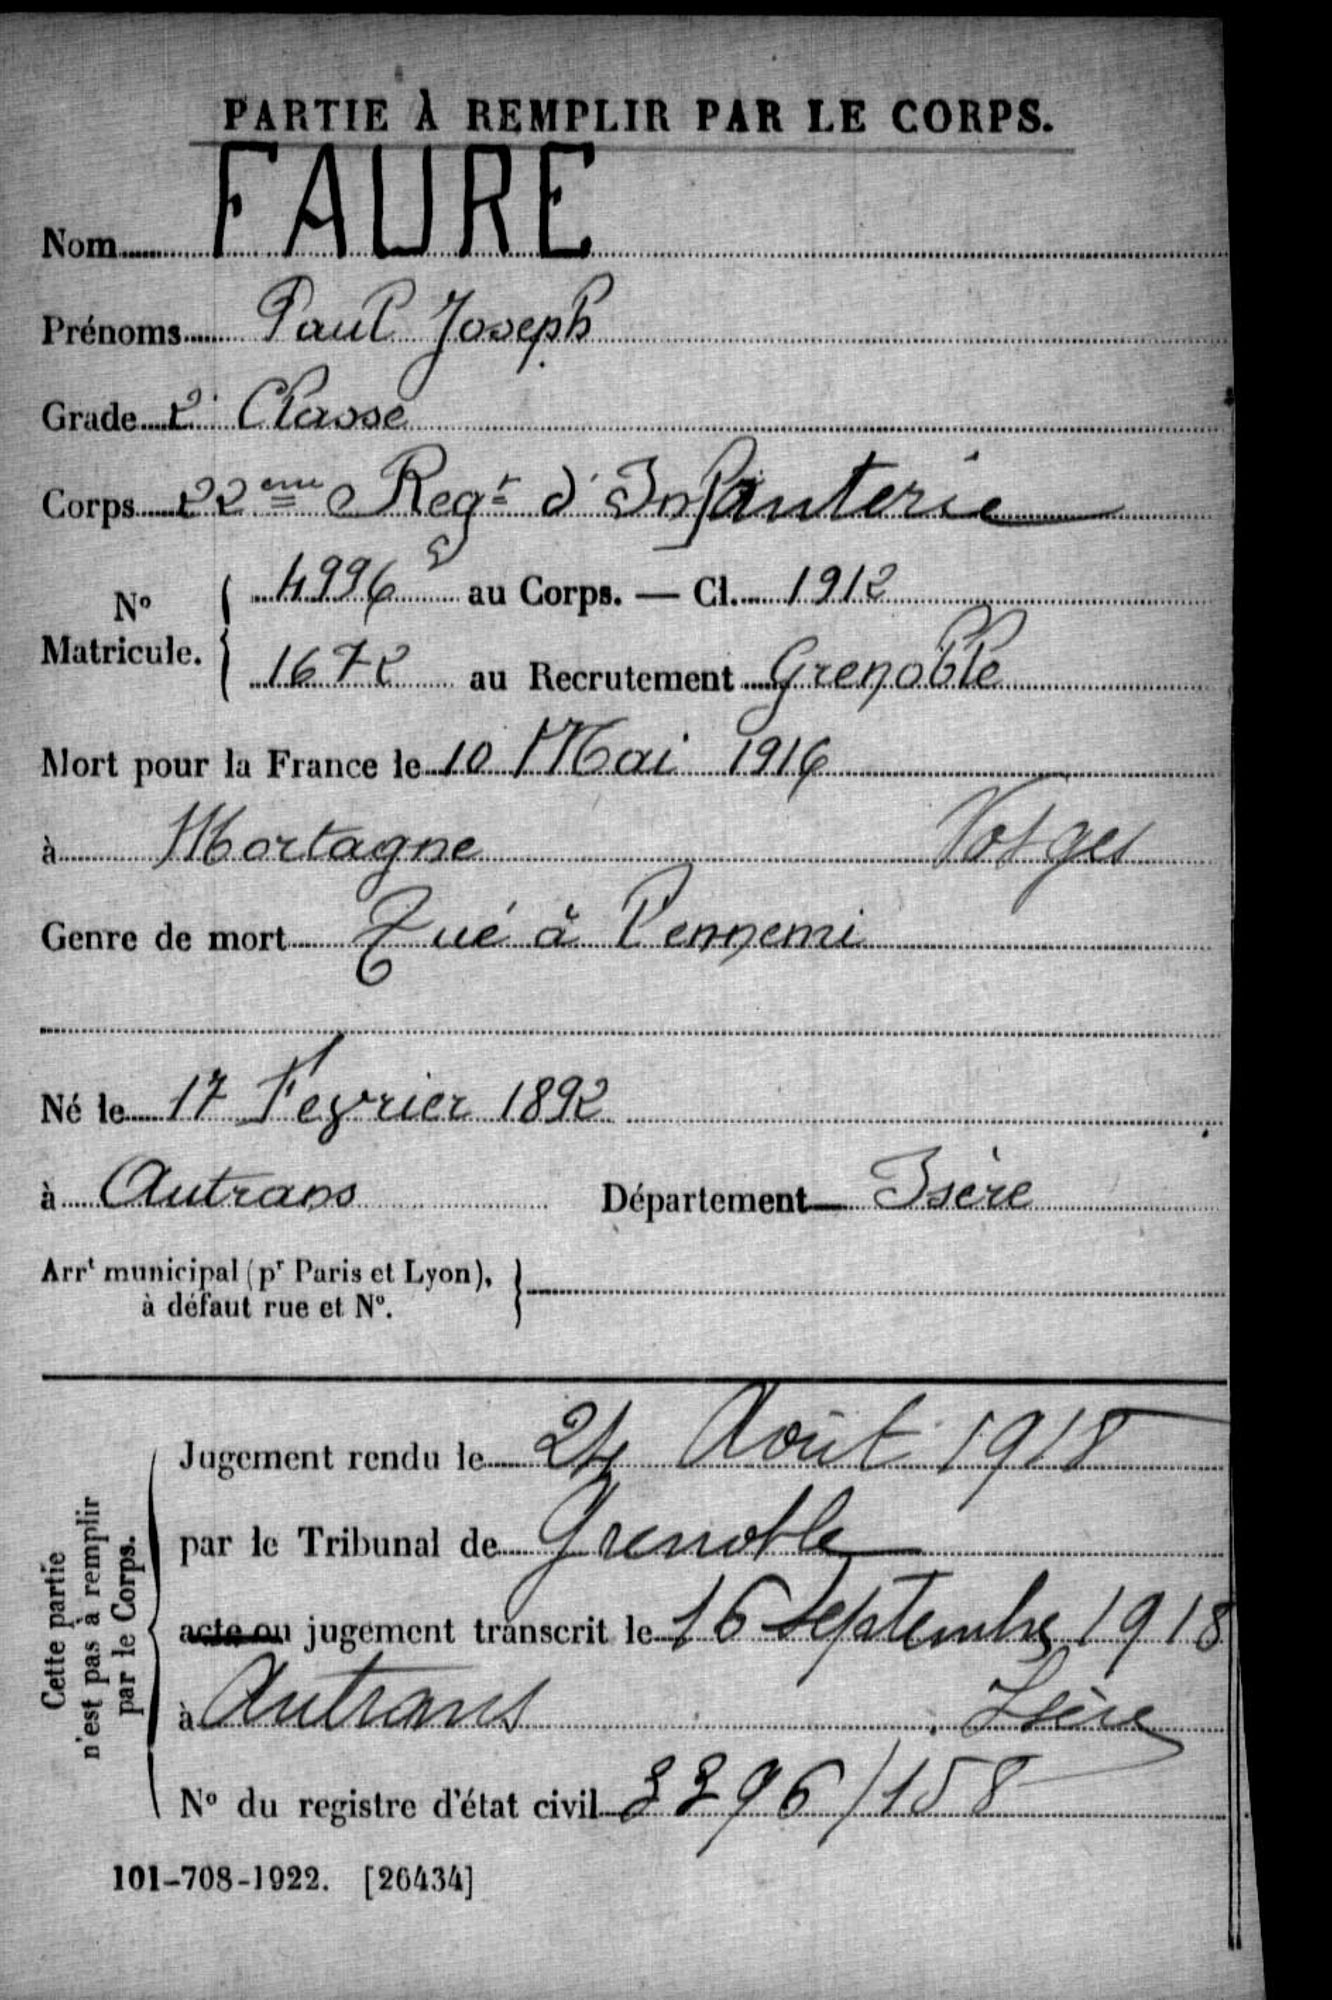 PARTIE À REMPLIR PAR LE CORPS.
Nom FAURE
Prénoms Paul Joseph
Grade 2e Classe
Corps 22ème Regt d'Infanterie
No Matricule. { 4996 au Corps. — Cl. 1912
1672 au Recrutement Grenoble
Mort pour la France le 10 Mai 1916
à Mortagne Vosges
Genre de mort Tué à l'ennemi
Né le 17 Fevrier 1892
à Autrans Département Isère
Arrt municipal (pr Paris et Lyon), à défaut rue et No. }
Cette partie n'est pas à remplir par le Corps.
Jugement rendu le 24 Août 1918
par le Tribunal de Grenoble
acte ou jugement transcrit le 16 Septembre 1918
à Autrans Isère
No du registre d'état civil 3396/158
101-708-1922. [26434]